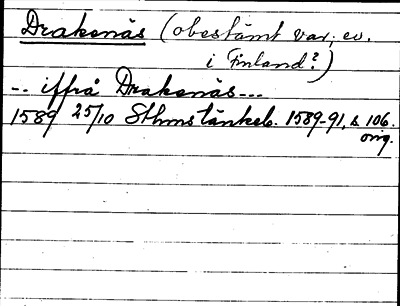 Drakenäs (obestämt var; ev.
i Finland?)
-- iffrå Drakenäs---
1589 25/10 Sthms tänkeb. 1589-91, s. 106.
orig.